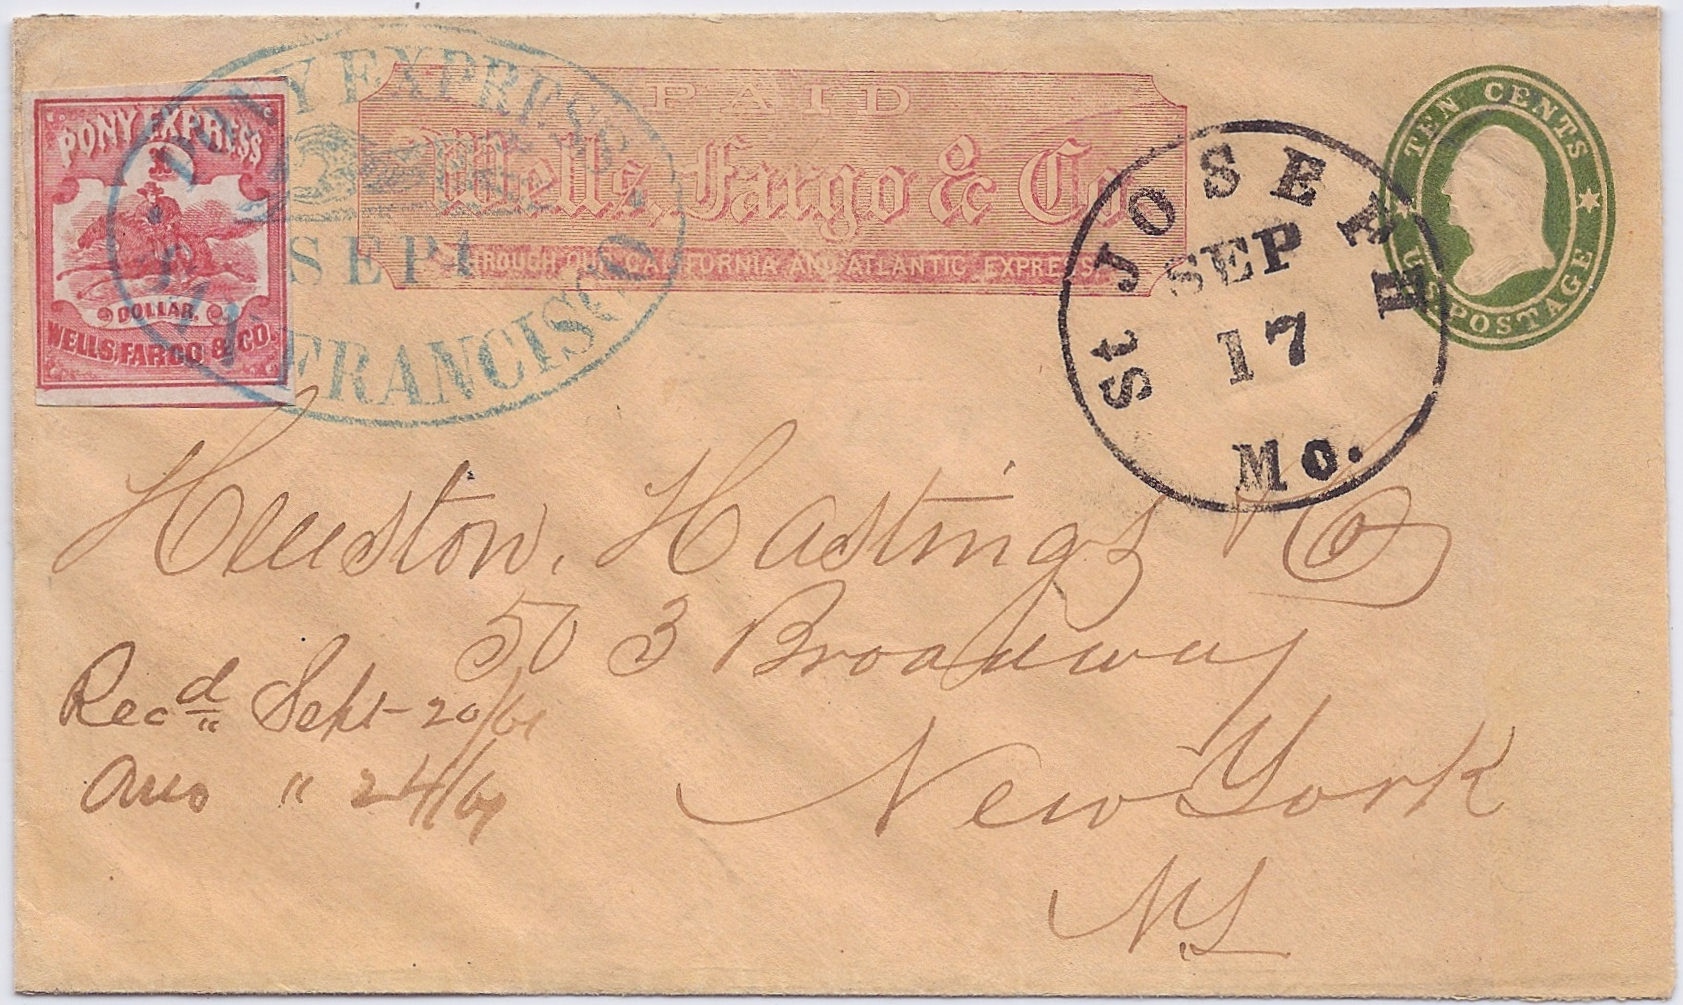 PONY EXPRESS
1
DOLLAR.
WELLS, FARGO & CO.
PONY EXPRESS.
SEP 4
SAN FRANCISCO
PAID
Wells, Fargo & Co.
THROUGH OUR CALIFORNIA AND ATLANTIC EXPRESS.
St JOSEPH
SEP
17
Mo.
TEN CENTS
U.S. POSTAGE
Heuston, Hastings & Co
503 Broadway
New York
NY
Recd Sept 20/61
Ans " 24/61